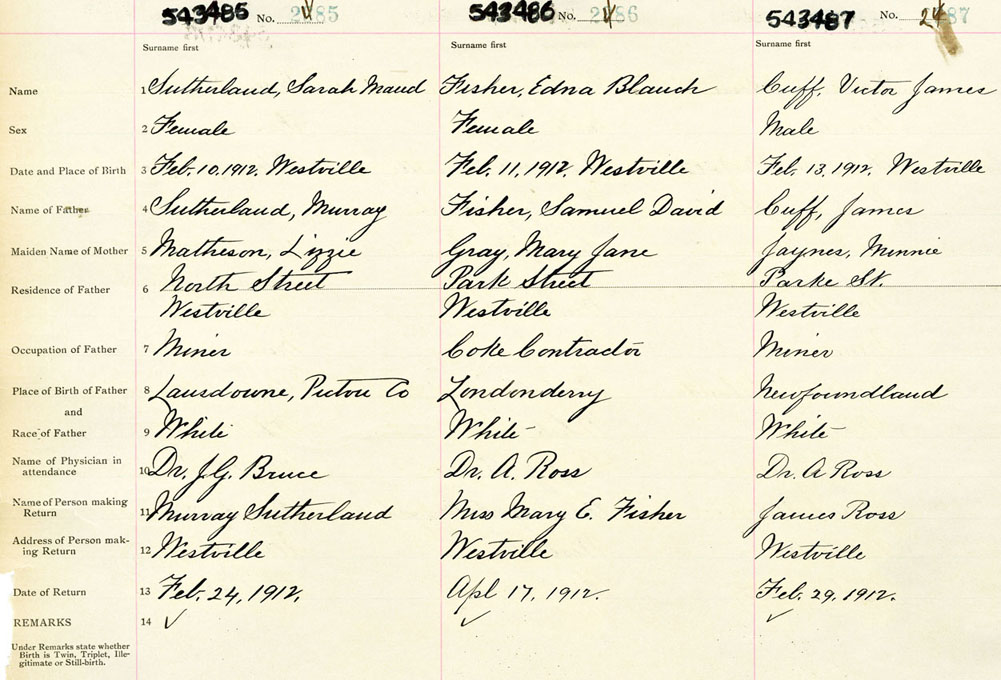 543485 No. 85 543486 No. 86 543487 No. 87
Surname first Surname first Surname first
Name 1 Sutherland, Sarah Maud Fisher, Edna Blanch Cuff, Victor James
Sex 2 Female Female Male
Date and Place of Birth 3 Feb. 10, 1912. Westville Feb. 11, 1912. Westville Feb. 13, 1912. Westville
Name of Father 4 Sutherland, Murray Fisher, Samuel David Cuff, James
Maiden Name of Mother 5 Matheson, Lizzie Gray, Mary Jane Jaynes, Minnie
Residence of Father 6 North Street Park Street Parke St.
Westville Westville Westville
Occupation of Father 7 Miner Coke Contractor Miner
Place of Birth of Father 8 Lansdowne, Pictou Co Londonderry Newfoundland
and
Race of Father 9 White White White
Name of Physician in
attendance 10 Dr. J.G. Bruce Dr. A. Ross Dr. A Ross
Name of Person making
Return 11 Murray Sutherland Miss Mary E. Fisher James Ross
Address of Person mak-
ing Return 12 Westville Westville Westville
Date of Return 13 Feb. 24, 1912. Apl 17, 1912. Feb. 29, 1912.
REMARKS 14 ✓ ✓ ✓
Under Remarks state whether
Birth is Twin, Triplet, Ille-
gitimate or Still-birth.